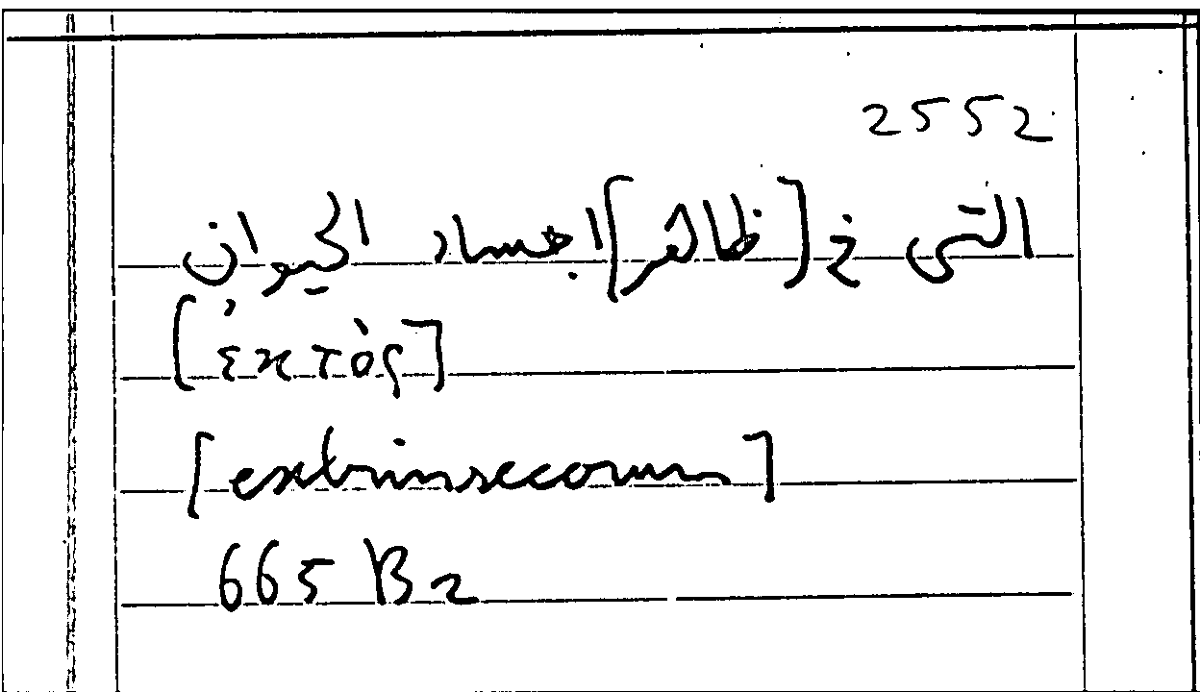 2552
التى فى [ظاهر] اجساد الحيوان
[ἐκτός]
[extrinsecorum]
665 B2